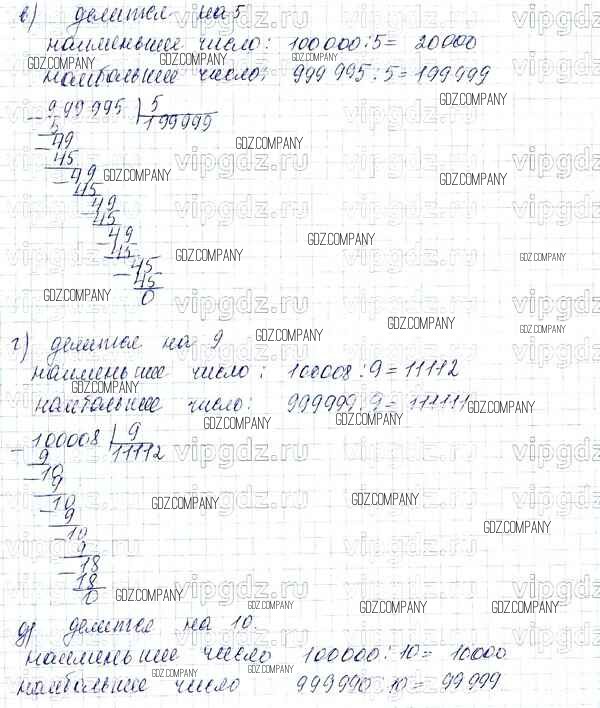 в) делится на 5
наименьшее число: 100000:5= 20000
наибольшее число: 999 995:5=199999
999995 | 5
5 199999
49
45
49
45
49
45
49
45
45
45
0
г) делится на 9
наименьшее число: 100008:9=11112
наибольшее число: 999999:9=111111
100008 | 9
9 11112
10
9
10
9
10
9
18
18
0
д) делится на 10.
наименьшее число 100000:10= 10000
наибольшее число 999990:10=99999
GDZ.COMPANY
vipgdz.ru